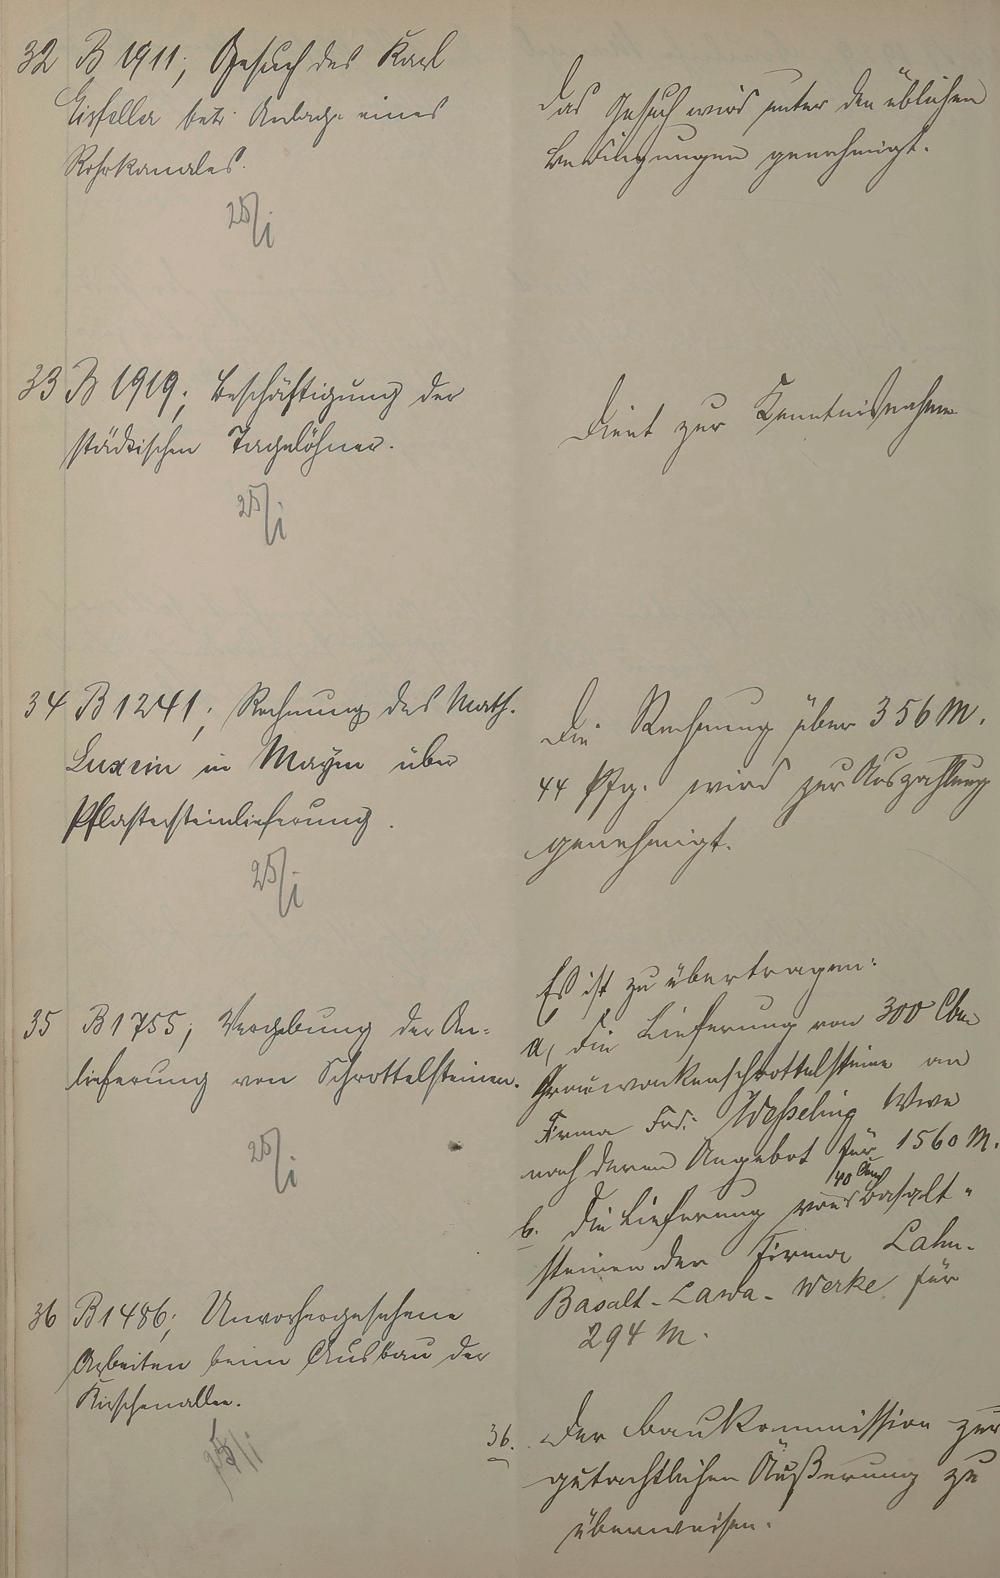 32 B 1911; Gesuch des Karl
Eisfeller betr. Anlage eines
Rohrkanales.
25/I
Das Gesuch wird unter den üblichen
Bedingungen genehmigt.
33 B 1919; Beschäftigung der
städtischen Tagelöhner.
25/I
Dient zur Kenntnisnahme
34 B 1241; Rechnung des Math.
Luxem in Mayen über
Pflastersteinlieferung.
25/I
Die Rechnung über 356 M.
44 Pfg. wird zur Auszahlung
genehmigt.
35 B 1755; Vergebung der An-
lieferung von Schrottelsteinen.
25/I
Es ist zu übertragen:
a, die Lieferung von 300 Cbm
Grauwackenschrottelsteine an
Firma Frd. Weßeling Wwe
nach deren Angebot für 1560 M.
b. die Lieferung von 40 Cbm Basalt-
steinen der Firma Lahn-
Basalt-Lawa-Werke für
294 M.
36 B 1486; Unvorhergesehene
Arbeiten beim Ausbau der
Kirschenallee.
25/I
36. Der Baukommission zur
gutachtlichen Äußerung zu
überweisen.